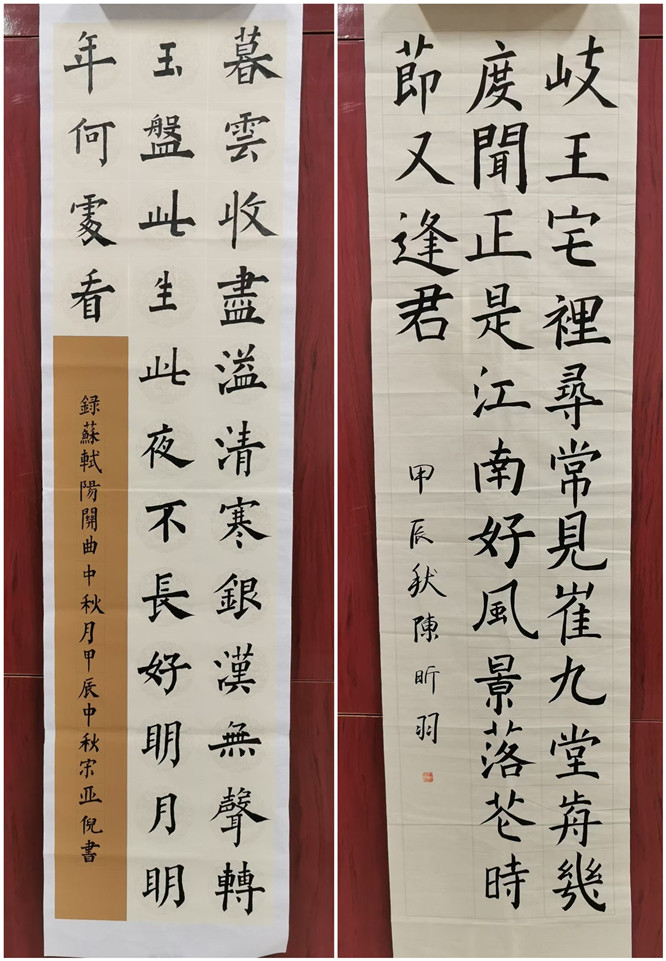 暮雲收盡溢清寒銀漢無聲轉
玉盤此生此夜不長好明月明
年何處看
録蘇軾陽關曲中秋月甲辰中秋宋亚倪書
岐王宅裡尋常見崔九堂歬幾
度聞正是江南好風景落花時
節又逢君
甲辰秋陳昕羽